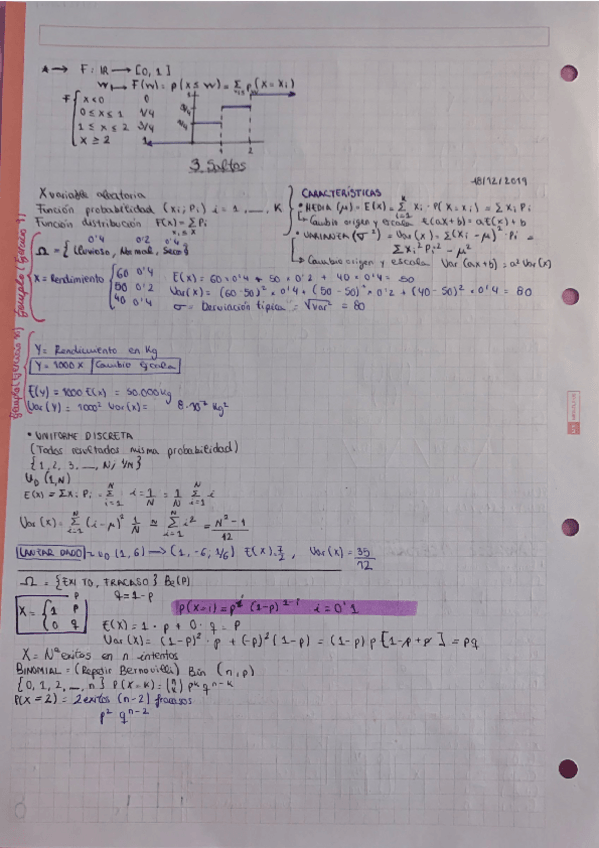 A → F: ℝ → [0, 1]
w → F(w) = p(X ≤ w) = Σ p(X = xi)
F { X < 0 0
0 ≤ x ≤ 1 1/4
1 ≤ x ≤ 2 3/4
X ≥ 2 1
1 2
3 Saltos
18/12/2019
X variable aleatoria
Función probabilidad (xi; Pi) i = 1, ..., K
Función distribución F(x) = Σ Pi
xi ≤ x
CARACTERÍSTICAS
• MEDIA (μ) = E(X) = Σ xi · P(X = xi) = Σ xi Pi
↳ Cambio origen y escala E(ax+b) = aE(x) + b
• VARIANZA (σ²) = Var(X) = Σ(xi - μ)² · Pi =
Σ xi² Pi² - μ²
↳ Cambio origen y escala Var(ax+b) = a² Var(x)
0'4 0'2 0'4
Ω = { Lluvioso, Normal, Seco }
X = Rendimiento { 60 0'4
50 0'2
40 0'4
E(x) = 60 · 0'4 + 50 · 0'2 + 40 · 0'4 = 50
Var(x) = (60-50)² · 0'4 + (50-50)² · 0'2 + (40-50)² · 0'4 = 80
σ = Desviación típica = √var² = 80
Y = Rendimiento en Kg
Y = 1000 X | Cambio Escala
E(y) = 1000 E(x) = 50.000 Kg
Var(Y) = 1000² Var(x) = Kg²
• UNIFORME DISCRETA
(Todos resultados misma probabilidad)
{1, 2, 3, ..., N; 1/N}
U_D (1, N)
E(x) = Σ xi Pi = Σ i = 1/N = 1/N Σ i
Var(x) = Σ (i - μ)² 1/N ≈ Σ i² = N² - 1 / 12
LANZAR DADO ~ U_D (1, 6) → (1, -6, 1/6) E(x) = 7/2, Var(x) = 35/12
Ω = {EXITO, FRACASO} Be(p)
p q = 1-p
X = { 1 p
0 q
P(X = i) = pⁱ (1-p)¹⁻ⁱ i = 0'1
E(X) = 1 · p + 0 · q = P
Var(X) = (1-p)² · p + (-p)² (1-p) = (1-p) p [1-p+p] = pq
X = Nº exitos en n intentos
BINOMIAL = (Repetir Bernouilli) Bin (n, p)
{0, 1, 2, ..., n} P(X = K) = (n k) pᵏ qⁿ⁻ᵏ
P(X = 2) = 2 exitos (n-2) fracasos
p² qⁿ⁻²